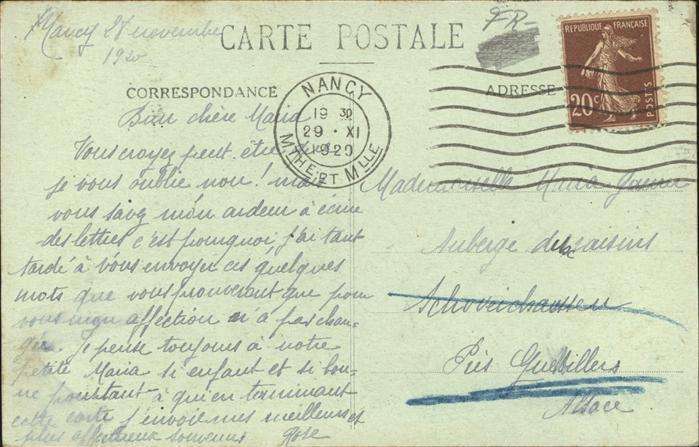 Nancy 28 novembre
1920
CARTE POSTALE
FR
REPUBLIQUE FRANÇAISE
20c
POSTES
CORRESPONDANCE
ADRESSE
NANCY
19 30
29 · XI
1920
MTHE ET MLLE
Bien chère Maria
Vous croyez peut-être que
je vous oublie non! mais
vous savez mon ardeur à écrire
des lettres c'est pourquoi j'ai tant
tardé à vous envoyer ces quelques
mots que vous prouveront que pour
vous mon affection n'a pas chan-
gée. Je pense toujours à notre
petite Maria si enfant et si bon-
ne pourtant à qui en terminant
cette carte j'envoie mes meilleurs et
plus affectueux souvenirs Rose
Mademoiselle Maria
Auberge des raisins
Près Guebwiller
Alsace